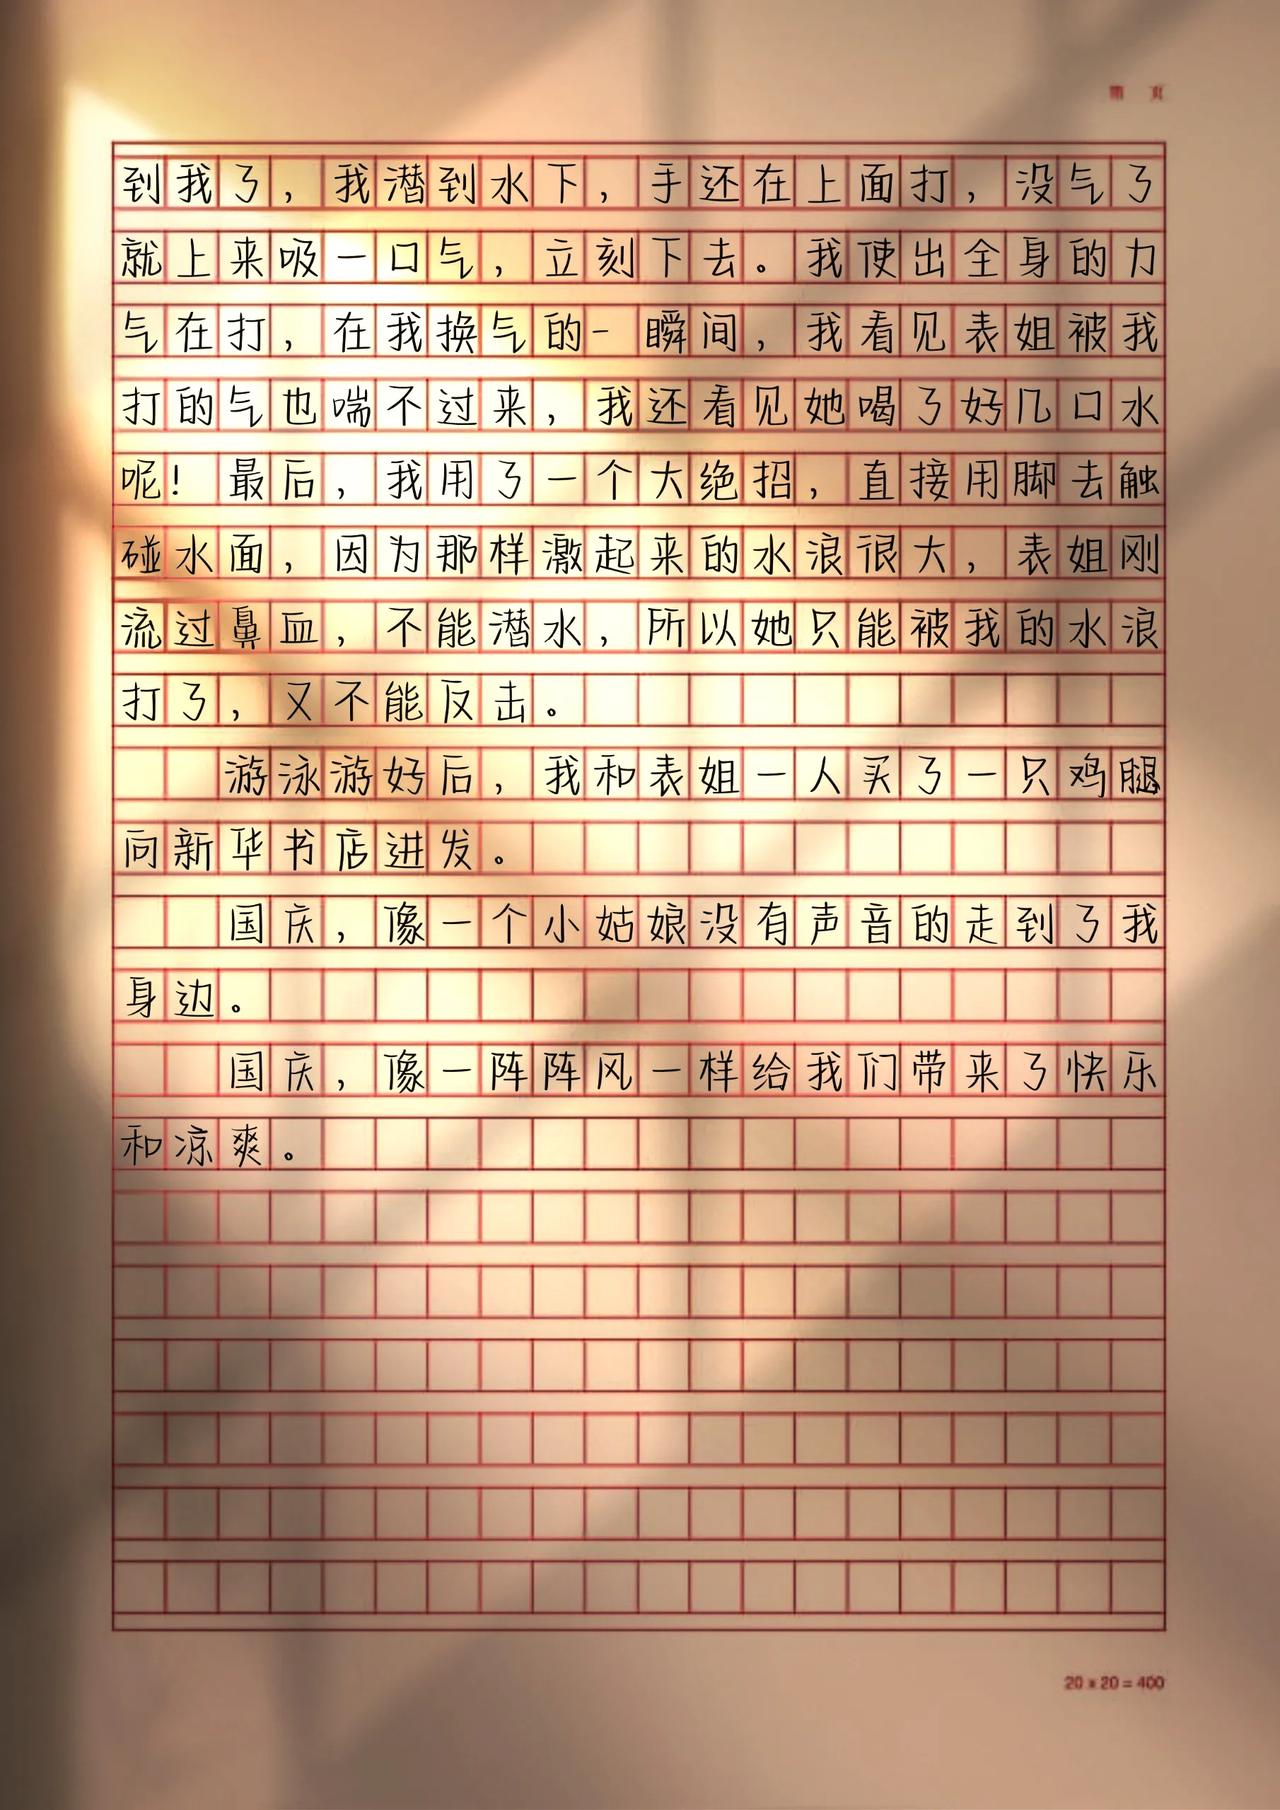 第 页
到我了，我潜到水下，手还在上面打，没气了
就上来吸一口气，立刻下去。我使出全身的力
气在打，在我换气的一瞬间，我看见表姐被我
打的气也喘不过来，我还看见她喝了好几口水
呢！最后，我用了一个大绝招，直接用脚去触
碰水面，因为那样激起来的水浪很大，表姐刚
流过鼻血，不能潜水，所以她只能被我的水浪
打了，又不能反击。
游泳游好后，我和表姐一人买了一只鸡腿
向新华书店进发。
国庆，像一个小姑娘没有声音的走到了我
身边。
国庆，像一阵阵风一样给我们带来了快乐
和凉爽。
20x20=400